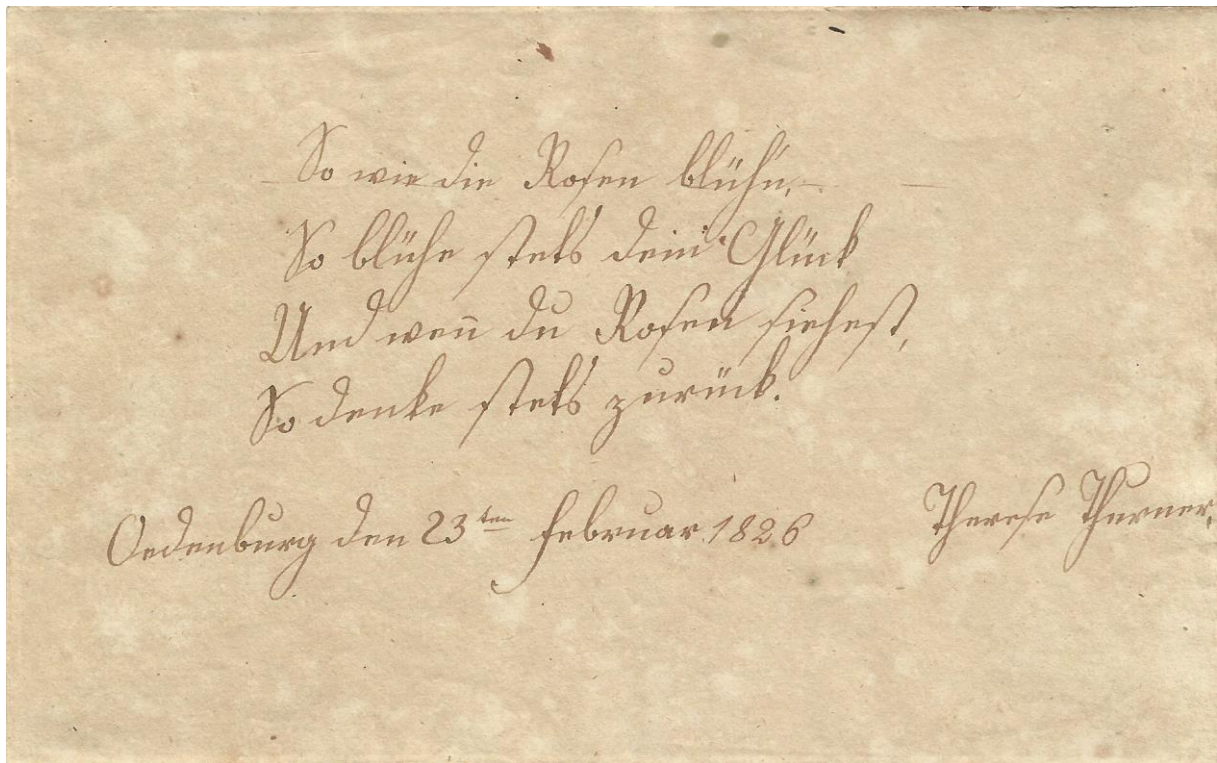 So wie die Rosen blühn,
So blühe stets dein Glück
Und wen̄ du Rosen siehest,
So denke stets zurück.
Oedenburg den 23ten Februar 1826
Therese Thurner.